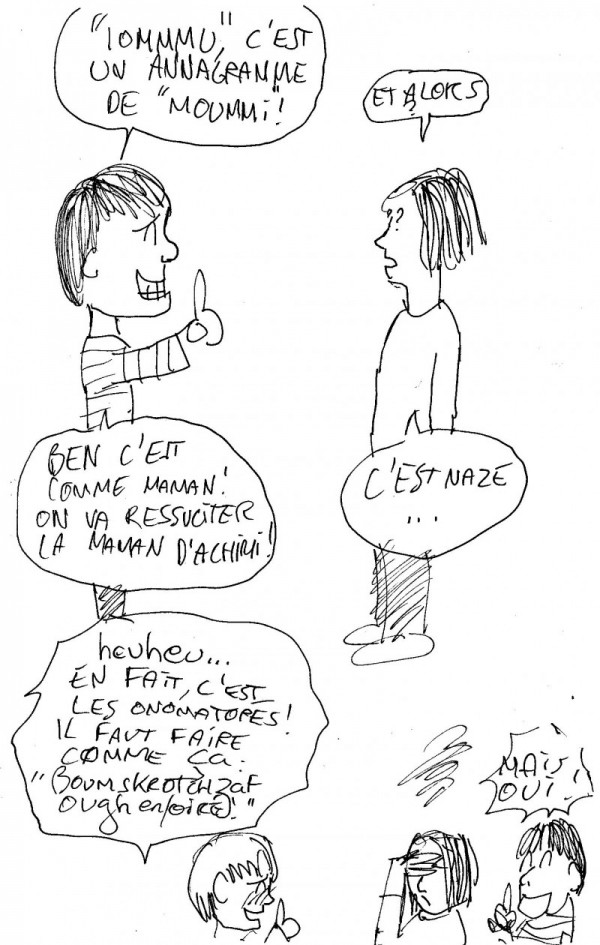 "IOMMMU," C'EST
UN ANNAGRAMME
DE "MOUMMI"!
ET ALORS
BEN C'EST
COMME MAMAN!
ON VA RESSUCITER
LA MAMAN D'ACHIMI!
C'EST NAZE
...
heuheu...
EN FAIT, C'EST
LES ONOMATOPES!
IL FAUT FAIRE
COMME ÇA:
"BOUMSKROTCHZAF
MAIS
OUI!